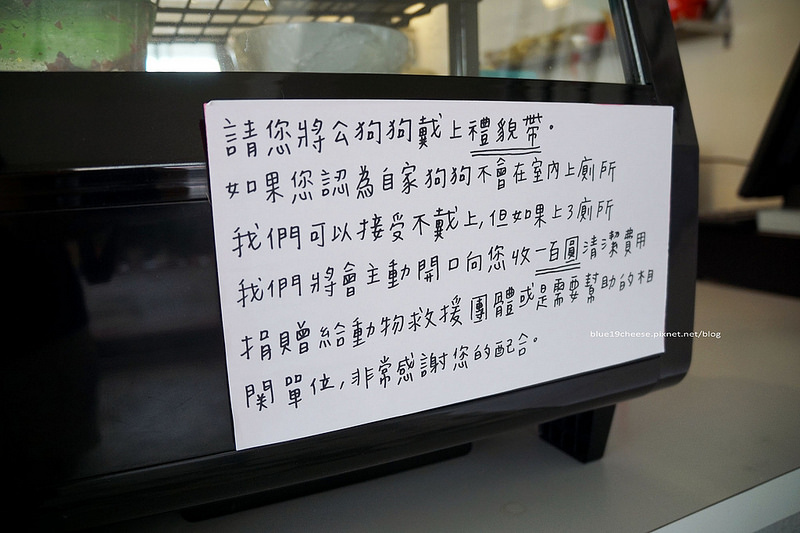 請您將公狗狗戴上禮貌帶。
如果您認為自家狗狗不會在室內上廁所
我們可以接受不戴上,但如果上了廁所
我們將會主動開口向您收一百圓清潔費用
捐贈給動物救援團體或是需要幫助的相
関單位,非常感謝您的配合。
blue19cheese.pixnet.net/blog